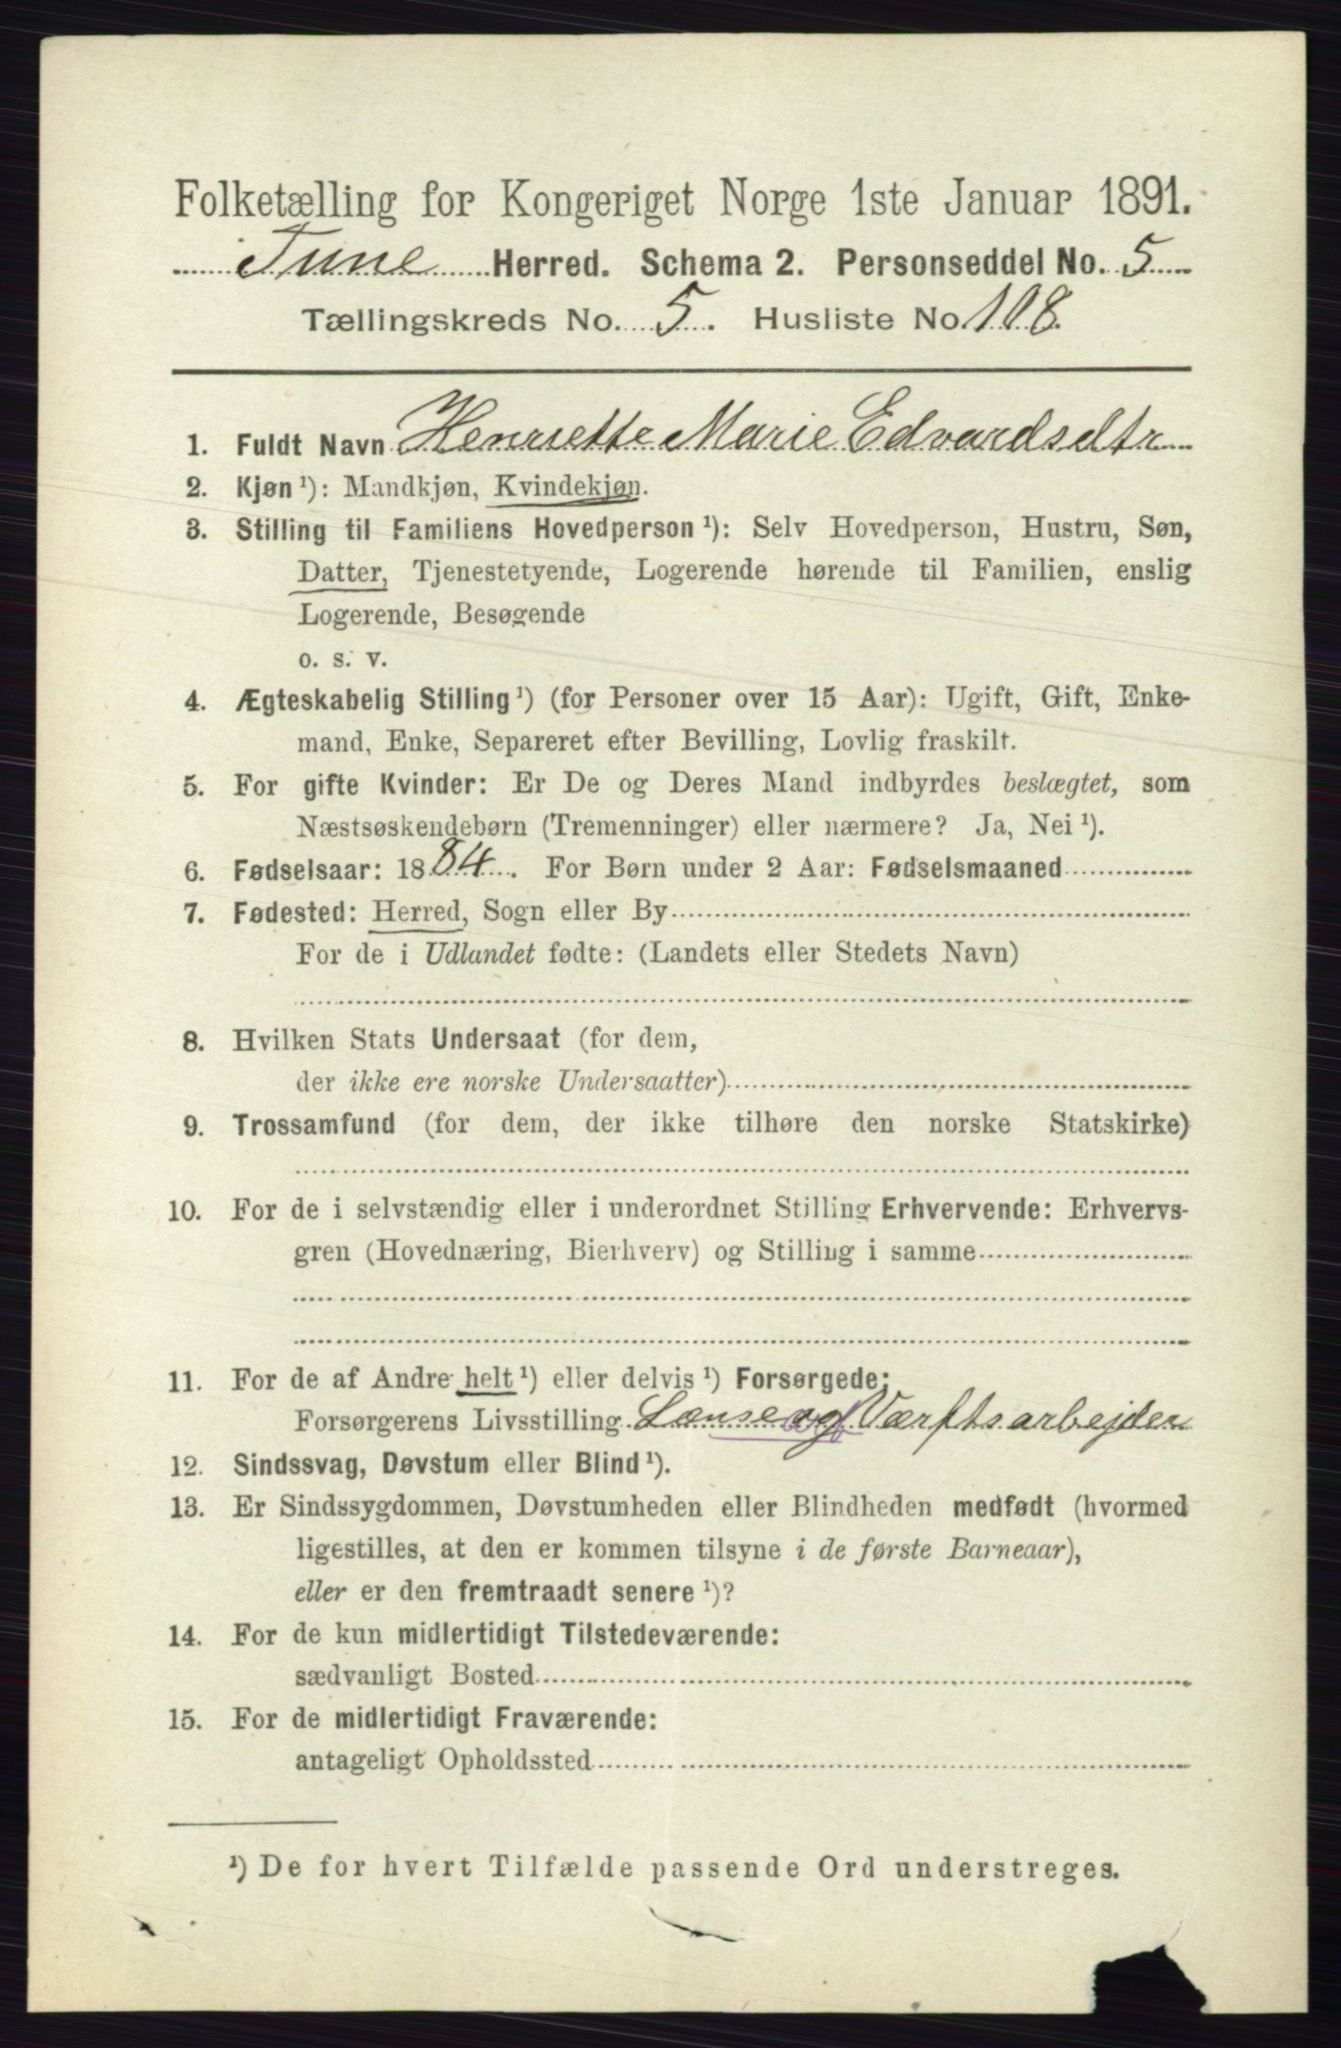 Folketælling for Kongeriget Norge 1ste Januar 1891.
Tune Herred. Schema 2. Personseddel No. 5
Tællingskreds No. 5. Husliste No. 108.
1. Fuldt Navn Henriette Marie Edvardsdtr
2. Kjøn ¹): Mandkjøn, Kvindekjøn.
3. Stilling til Familiens Hovedperson ¹): Selv Hovedperson, Hustru, Søn,
Datter, Tjenestetyende, Logerende hørende til Familien, enslig
Logerende, Besøgende
o. s. v.
4. Ægteskabelig Stilling ¹) (for Personer over 15 Aar): Ugift, Gift, Enke-
mand, Enke, Separeret efter Bevilling, Lovlig fraskilt.
5. For gifte Kvinder: Er De og Deres Mand indbyrdes beslægtet, som
Næstsøskendebørn (Tremenninger) eller nærmere? Ja, Nei ¹).
6. Fødselsaar: 1884. For Børn under 2 Aar: Fødselsmaaned
7. Fødested: Herred, Sogn eller By
For de i Udlandet fødte: (Landets eller Stedets Navn)
8. Hvilken Stats Undersaat (for dem,
der ikke ere norske Undersaatter)
9. Trossamfund (for dem, der ikke tilhøre den norske Statskirke)
10. For de i selvstændig eller i underordnet Stilling Erhvervende: Erhvervs-
gren (Hovednæring, Bierhverv) og Stilling i samme
11. For de af Andre helt ¹) eller delvis ¹) Forsørgede:
Forsørgerens Livsstilling Lænse og Værftsarbejder
12. Sindssvag, Døvstum eller Blind ¹).
13. Er Sindssygdommen, Døvstumheden eller Blindheden medfødt (hvormed
ligestilles, at den er kommen tilsyne i de første Barneaar),
eller er den fremtraadt senere ¹)?
14. For de kun midlertidigt Tilstedeværende:
sædvanligt Bosted
15. For de midlertidigt Fraværende:
antageligt Opholdssted
¹) De for hvert Tilfælde passende Ord understreges.